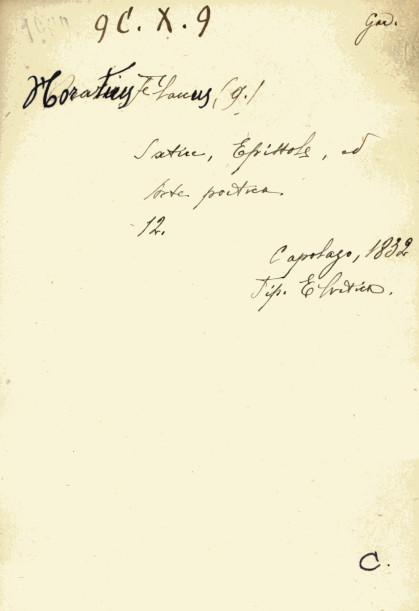 9C. X. 9
Horatius Flaccus, (Q.)
Satire, Epistole, ed
Arte poetica
12.
Capolago, 1832
Tip. Elvetica.
C.